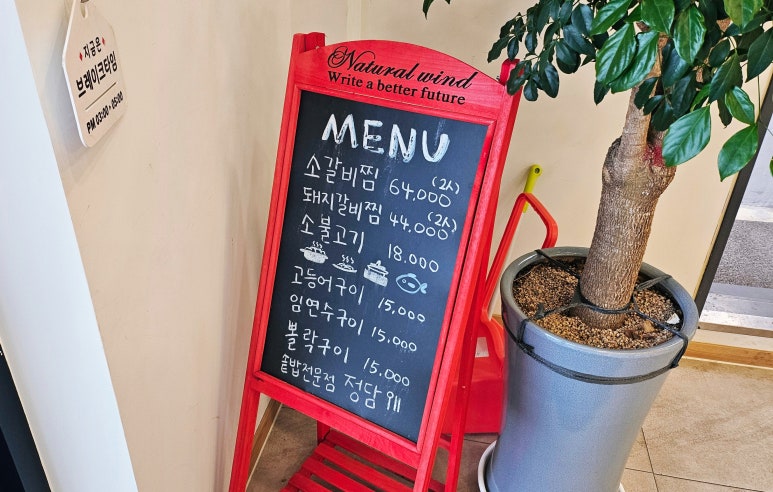 지금은
브레이크타임
PM 03:00 - 05:00
Natural wind
Write a better future
MENU
소갈비찜 64,000 (2人)
돼지갈비찜 44,000 (2人)
소불고기 18,000
고등어구이 15,000
임연수구이 15,000
볼락구이 15,000
솥밥전문점 정담